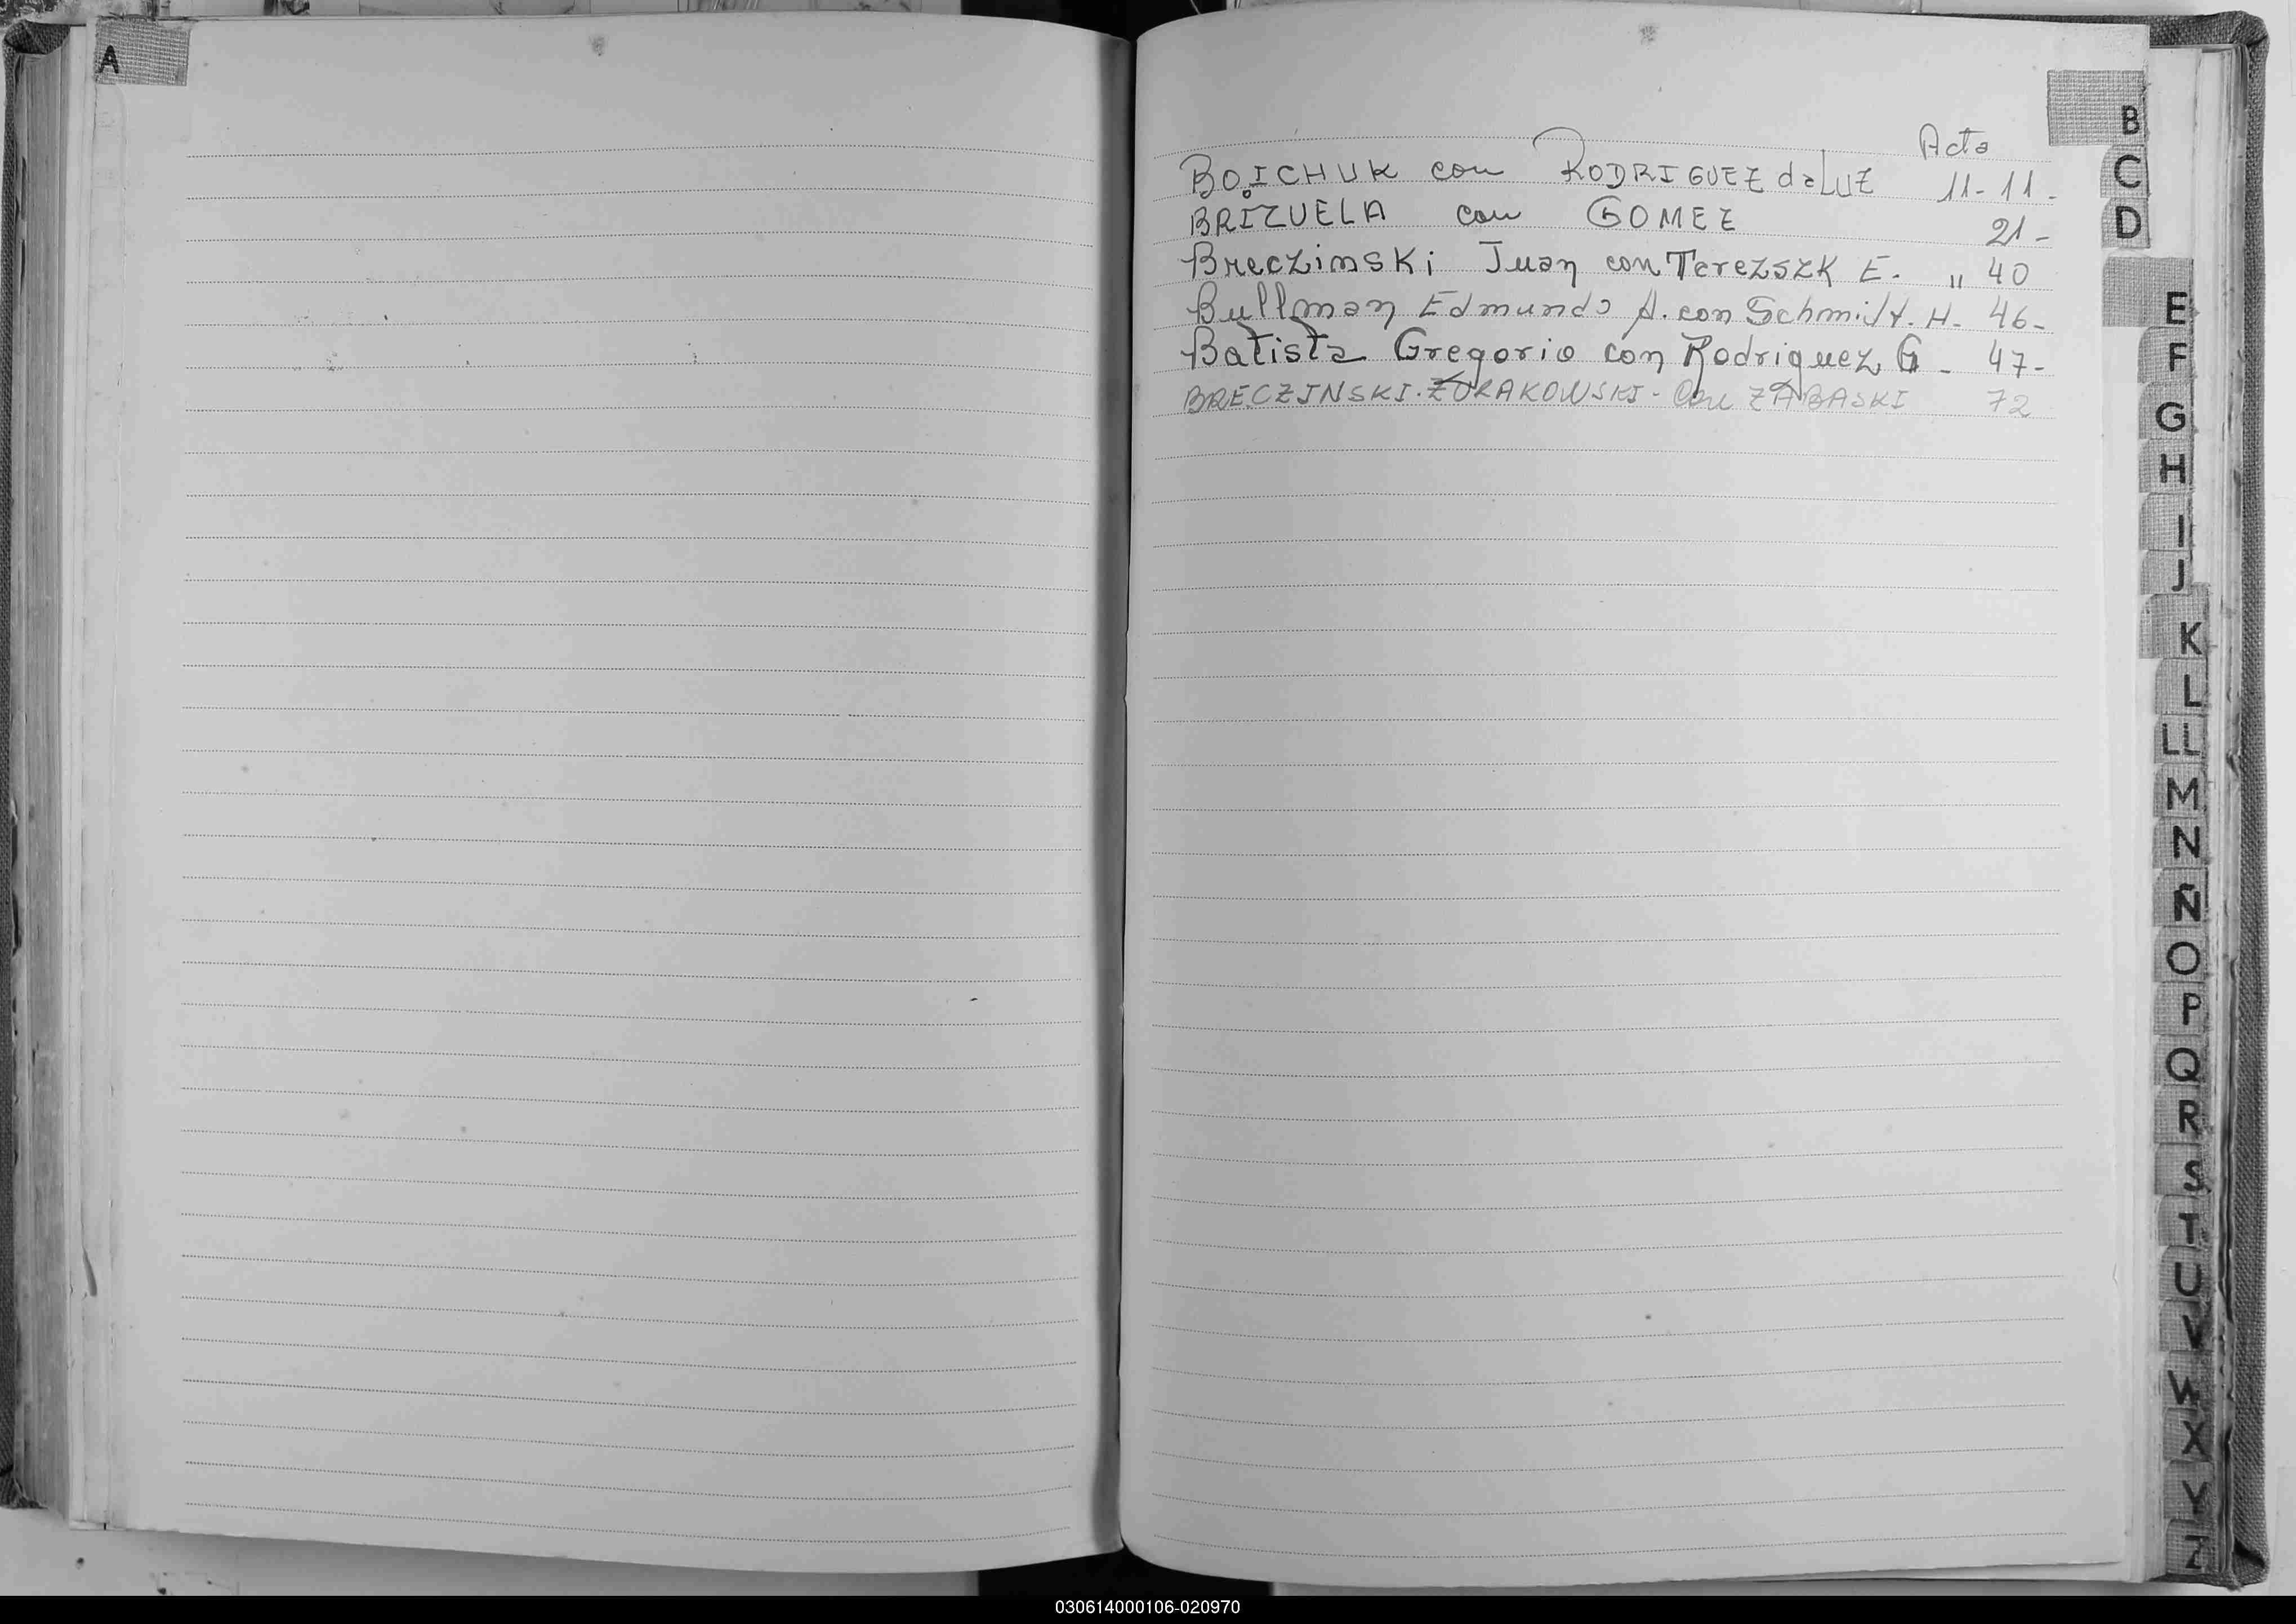 A
Acta
BOICHUK con RODRIGUEZ da LUZ 11-11-
BRIZUELA con GOMEZ 21-
Breczinski Juan con Terezszk E. " 40
Bullman Edmundo A. con Schmidt. H- 46-
Batista Gregorio con Rodriguez G - 47-
BRECZINSKI-ZURAKOWSKI- Con ZABASKI 72
B
C
D
E
F
G
H
I
J
K
L
LL
M
N
Ñ
O
P
Q
R
S
T
U
V
W
X
Y
Z
030614000106-020970